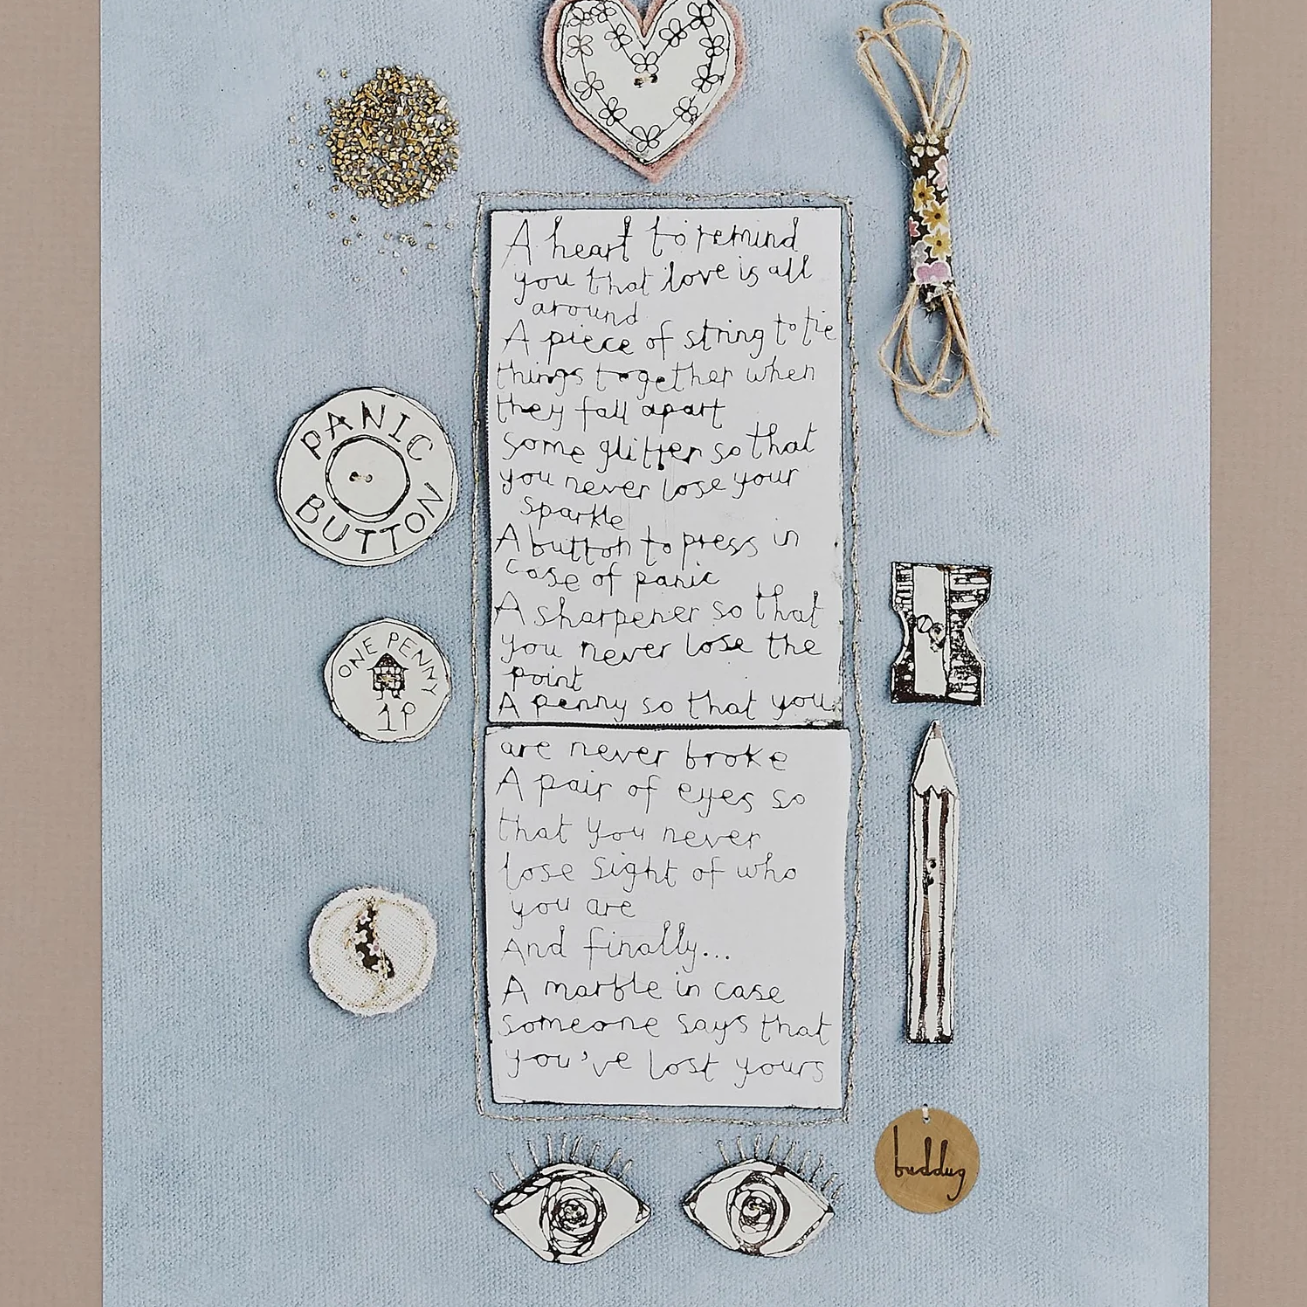 A heart to remind
you that love is all
around
A piece of string to tie
things together when
they fall apart
some glitter so that
you never lose your
sparkle
A button to press in
case of panic
A sharpener so that
you never lose the
point
A penny so that you
are never broke
A pair of eyes so
that you never
lose sight of who
you are
And finally...
A marble in case
someone says that
you've lost yours
PANIC
BUTTON
ONE PENNY
1P
buddug